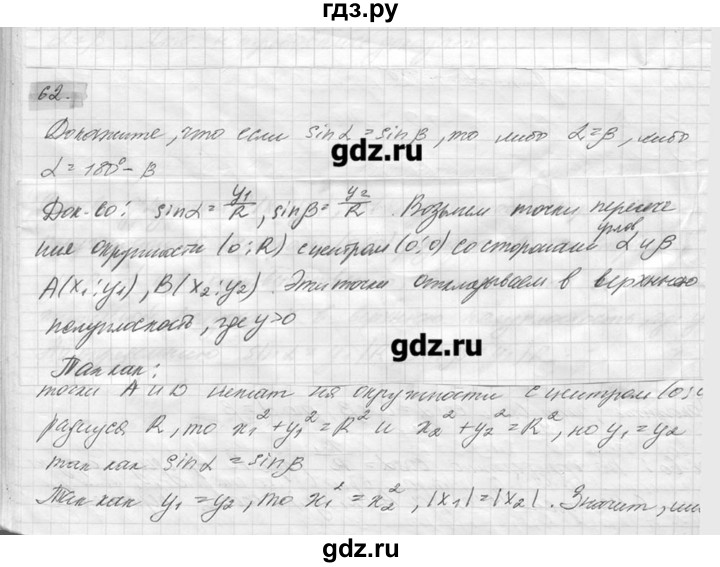 гдз.ру
62.
Докажите, что если sinα = sinβ, то либо α=β, либо
α=180°-β
Док-во: sinα = y₁/R, sinβ = y₂/R. Возьмем точки пересече
ние окружности (O;R) с центром (0;0) со сторонами углов α и β
A(x₁;y₁), B(x₂;y₂). Эти точки откладываем в верхнюю
полуплоскость, где y>0
Так как:
точки A и B лежат на окружности с центром (0;
радиуса R, то x₁²+y₁²=R² и x₂²+y₂²=R², но y₁=y₂
так как sinα = sinβ
Так как y₁=y₂, то x₁²=x₂², |x₁|=|x₂|. Значит,
gdz.ru
gdz.ru
gdz.ru